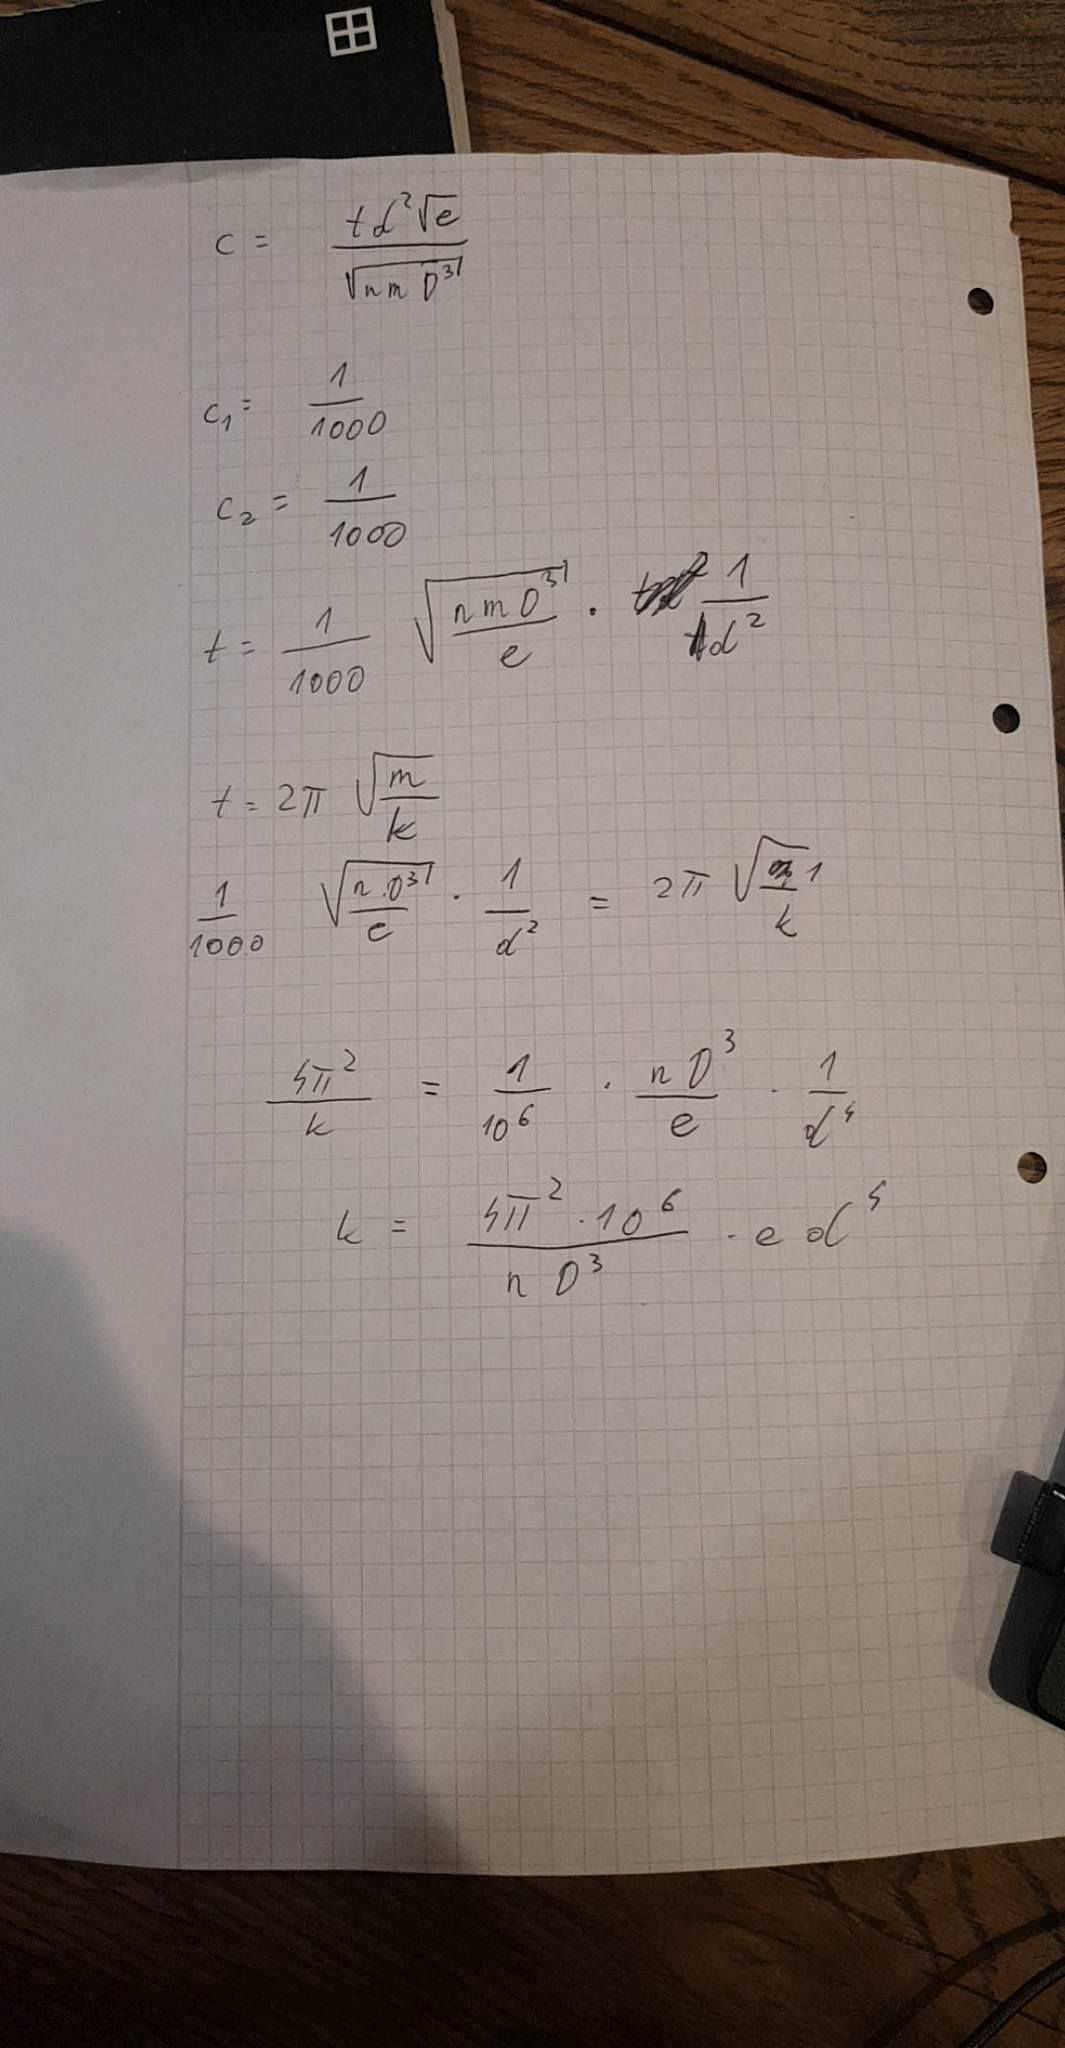 c = td²√e / √(n m D³)
c₁ = 1/1000
c₂ = 1/1000
t = 1/1000 √(n m D³ / e) · 1/d²
t = 2π √(m/k)
1/1000 √(n · D³ / e) · 1/d² = 2π √(1/k)
4π²/k = 1/10⁶ · n D³/e · 1/d⁴
k = 4π² · 10⁶ / n D³ · e d⁴